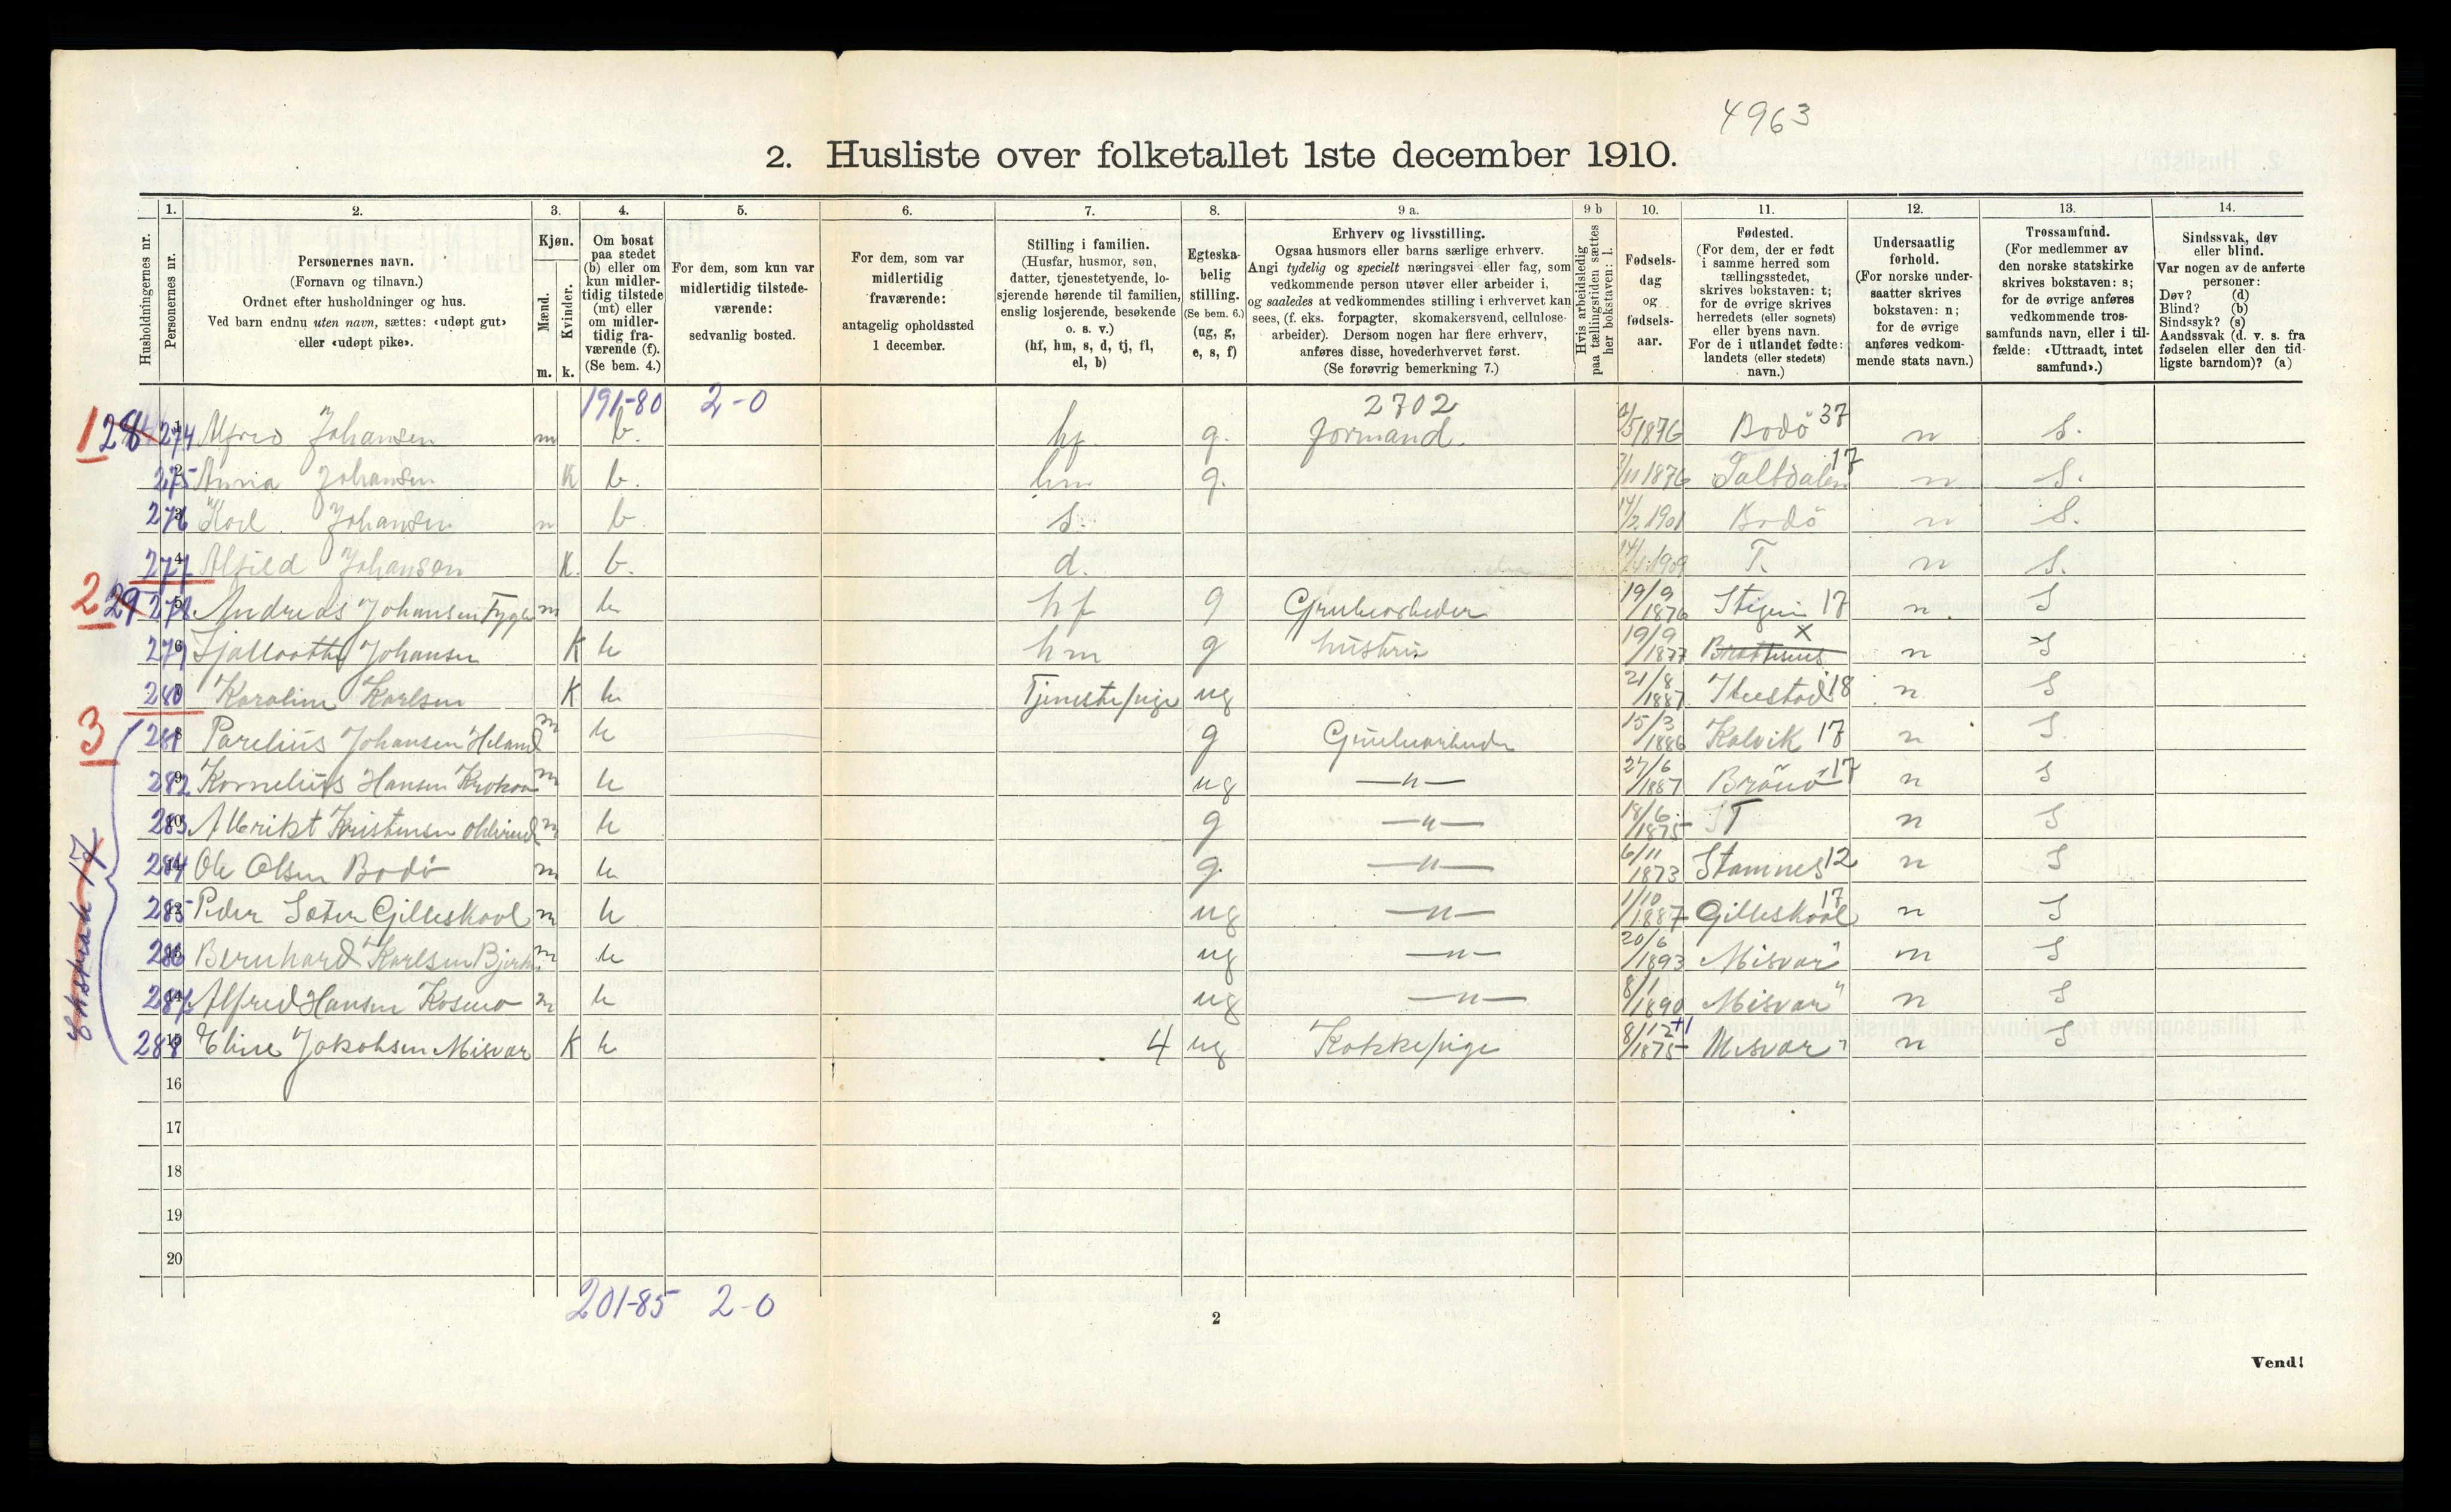 4963
2. Husliste over folketallet 1ste december 1910.
Husholdningernes nr.
1. Personernes nr.
2. Personernes navn.
(Fornavn og tilnavn.)
Ordnet efter husholdninger og hus.
Ved barn endnu uten navn, sættes: «udøpt gut»
eller «udøpt pike».
3. Kjøn.
Mænd. m.
Kvinder. k.
4. Om bosat
paa stedet
(b) eller om
kun midler-
tidig tilstede
(mt) eller
om midler-
tidig fra-
værende (f).
(Se bem. 4.)
5. For dem, som kun var
midlertidig tilstede-
værende:
sedvanlig bosted.
6. For dem, som var
midlertidig
fraværende:
antagelig opholdssted
1 december.
7. Stilling i familien.
(Husfar, husmor, søn,
datter, tjenestetyende, lo-
sjerende hørende til familien,
enslig losjerende, besøkende
o. s. v.)
(hf, hm, s, d, tj, fl,
el, b)
8. Egteska-
belig
stilling.
(Se bem. 6.)
(ug, g,
e, s, f)
9 a. Erhverv og livsstilling.
Ogsaa husmors eller barns særlige erhverv.
Angi tydelig og specielt næringsvei eller fag, som
vedkommende person utøver eller arbeider i,
og saaledes at vedkommendes stilling i erhvervet kan
sees, (f. eks. forpagter, skomakersvend, cellulose-
arbeider). Dersom nogen har flere erhverv,
anføres disse, hovederhvervet først.
(Se forøvrig bemerkning 7.)
9 b Hvis arbeidsledig
paa tællingstiden sættes
her bokstaven: l.
10. Fødsels-
dag
og
fødsels-
aar.
11. Fødested.
(For dem, der er født
i samme herred som
tællingsstedet,
skrives bokstaven: t;
for de øvrige skrives
herredets (eller sognets)
eller byens navn.
For de i utlandet fødte:
landets (eller stedets)
navn.)
12. Undersaatlig
forhold.
(For norske under-
saatter skrives
bokstaven: n;
for de øvrige
anføres vedkom-
mende stats navn.)
13. Trossamfund.
(For medlemmer av
den norske statskirke
skrives bokstaven: s;
for de øvrige anføres
vedkommende tros-
samfunds navn, eller i til-
fælde: «Uttraadt, intet
samfund».)
14. Sindssvak, døv
eller blind.
Var nogen av de anførte
personer:
Døv? (d)
Blind? (b)
Sindssyk? (s)
Aandssvak (d. v. s. fra
fødselen eller den tid-
ligste barndom)? (a)
191-80 2-0 2702
1 28 274 Alfred Johansen m b. hf g. formand. 1876 Bodö 37 n s.
275 Anna Johansen K b. hm g. /11 1876 Saltdalen 17 n s.
276 Johansen m b. s. 14/2 1901 Bodö n s.
277 Alfild Johansen K. b. d. 1909 T. n s.
2 29 278 Andreas Johansen m b hf g Grubearbeider 19/9 1876 17 n S
279 Johansen K b hm g hustru 19/9 1877 x n S
280 Karoline Karlsen K b Tjenestepige ug 21/8 1887 Ibestad 18 n S
3 281 Parelius Johansen m b g Grubearbeider 15/3 1886 Kalvik 17 n S
282 Kornelius Hansen m b ug —"— 27/6 1887 Brönö 17 n S
283 Kristensen m b g —"— 18/6 1875 T n S
284 Ole Olsen Bodö m b g. —"— 6/11 1873 Stamnes 12 n S
285 Peder Gilleskaal m b ug —"— 1/10 1887 Gilleskaal 17 n S
286 Bernhard Karlsen m b ug —"— 20/6 1893 Misvær " n S
287 Alfred Hansen Kosmo m b ug —"— 8/1 1890 Misvær " n S
288 Eline Jakobsen Misvær K b 4 ug Kokkepige 8/12 1875 +1 Misvær " n S
17
16
17
18
19
20
201-85 2-0
2
Vend!